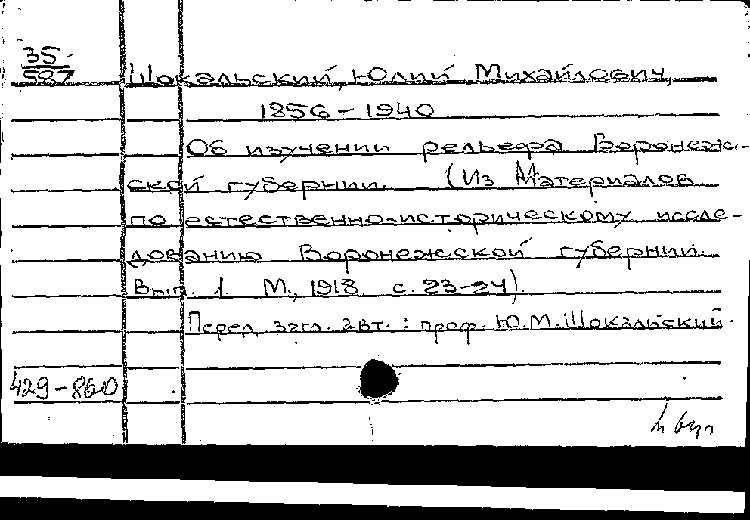 35
587
Шокальский, Юлий Михайлович,
1856-1940
Об изучении рельефа Воронеж-
ской губернии. (Из Материалов
по естественно-историческому иссле-
дованию Воронежской губернии.
Вып. 1. М., 1918. с. 23-24).
Перед загл. авт.: проф. Ю.М.Шокальский.
429-860